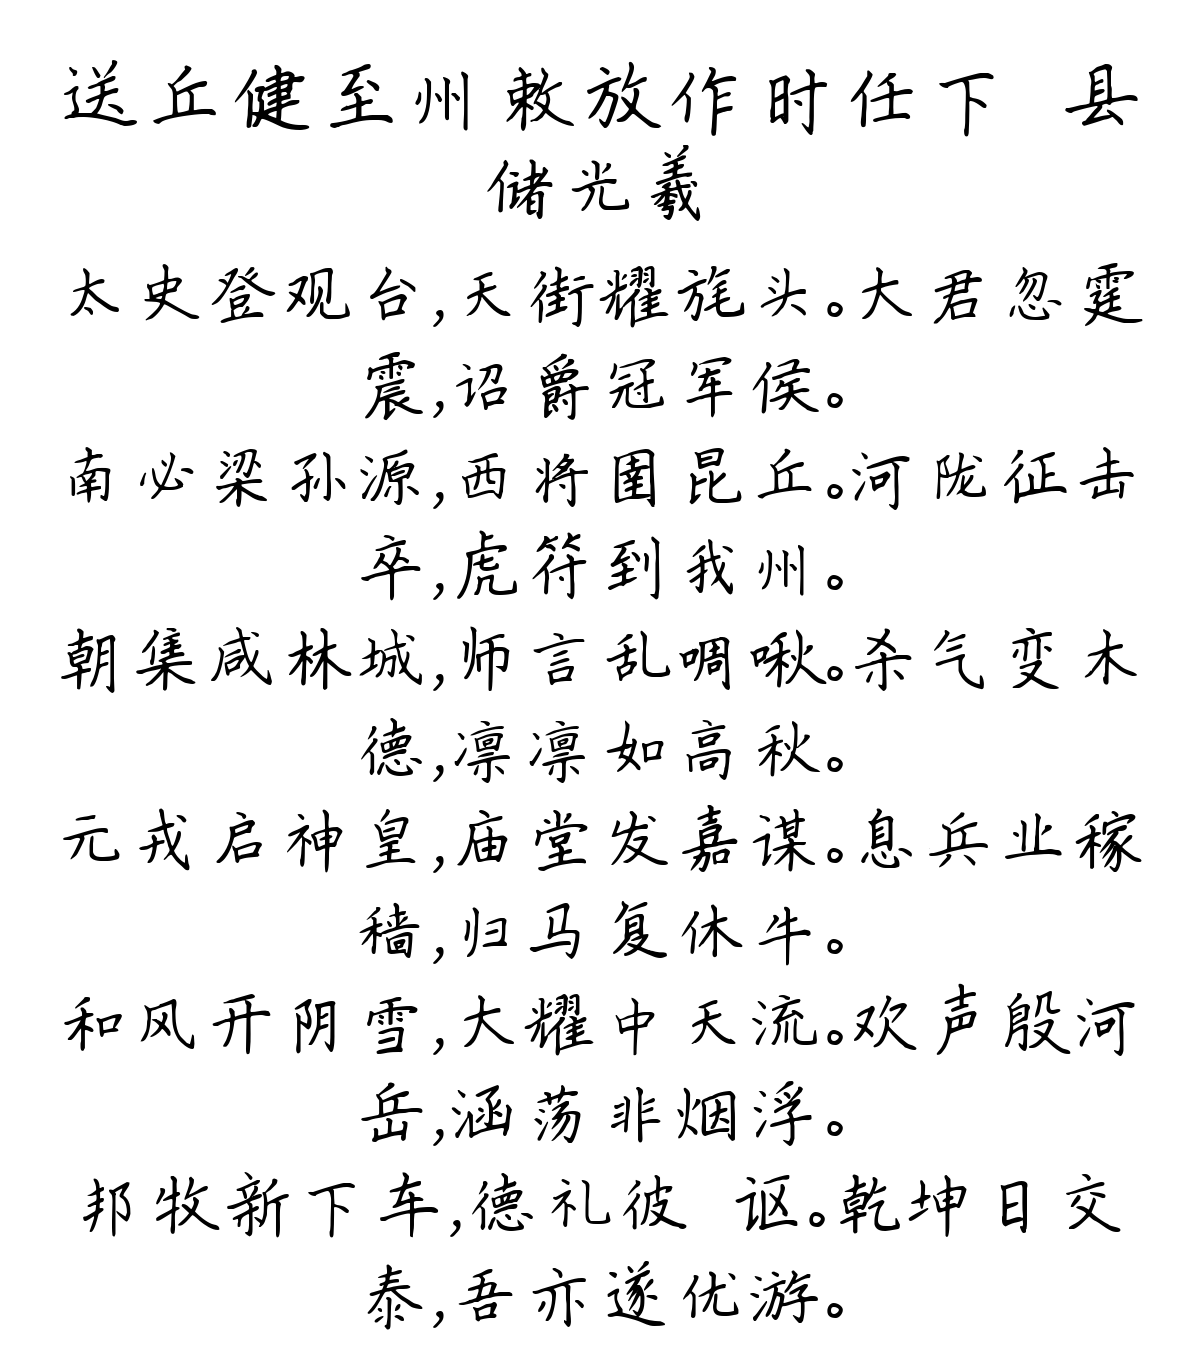 送丘健至州敕放作时任下 县
储光羲
太史登观台,天街耀旄头。大君忽霆
震,诏爵冠军侯。
南必梁孙源,西将圉昆丘。河陇征击
卒,虎符到我州。
朝集咸林城,师言乱啁啾。杀气变木
德,凛凛如高秋。
元戎启神皇,庙堂发嘉谋。息兵业稼
穑,归马复休牛。
和风开阴雪,大耀中天流。欢声殷河
岳,涵荡非烟浮。
邦牧新下车,德礼彼 讴。乾坤日交
泰,吾亦遂优游。